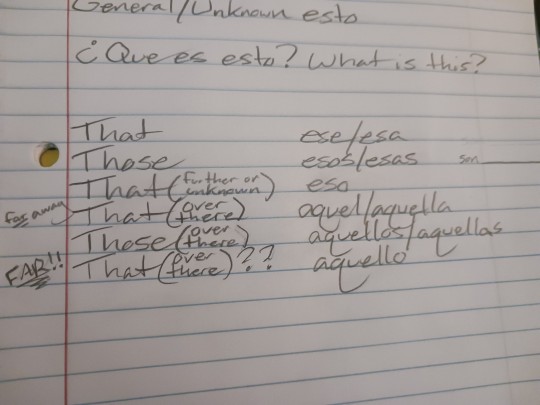 General/Unknown esto
¿Que es esto? What is this?
That ese/esa
Those esos/esas sm
That (further or unknown) eso
far away That (over there) aquel/aquella
Those (over there) aquellos/aquellas
FAR!! That (over there)?? aquello